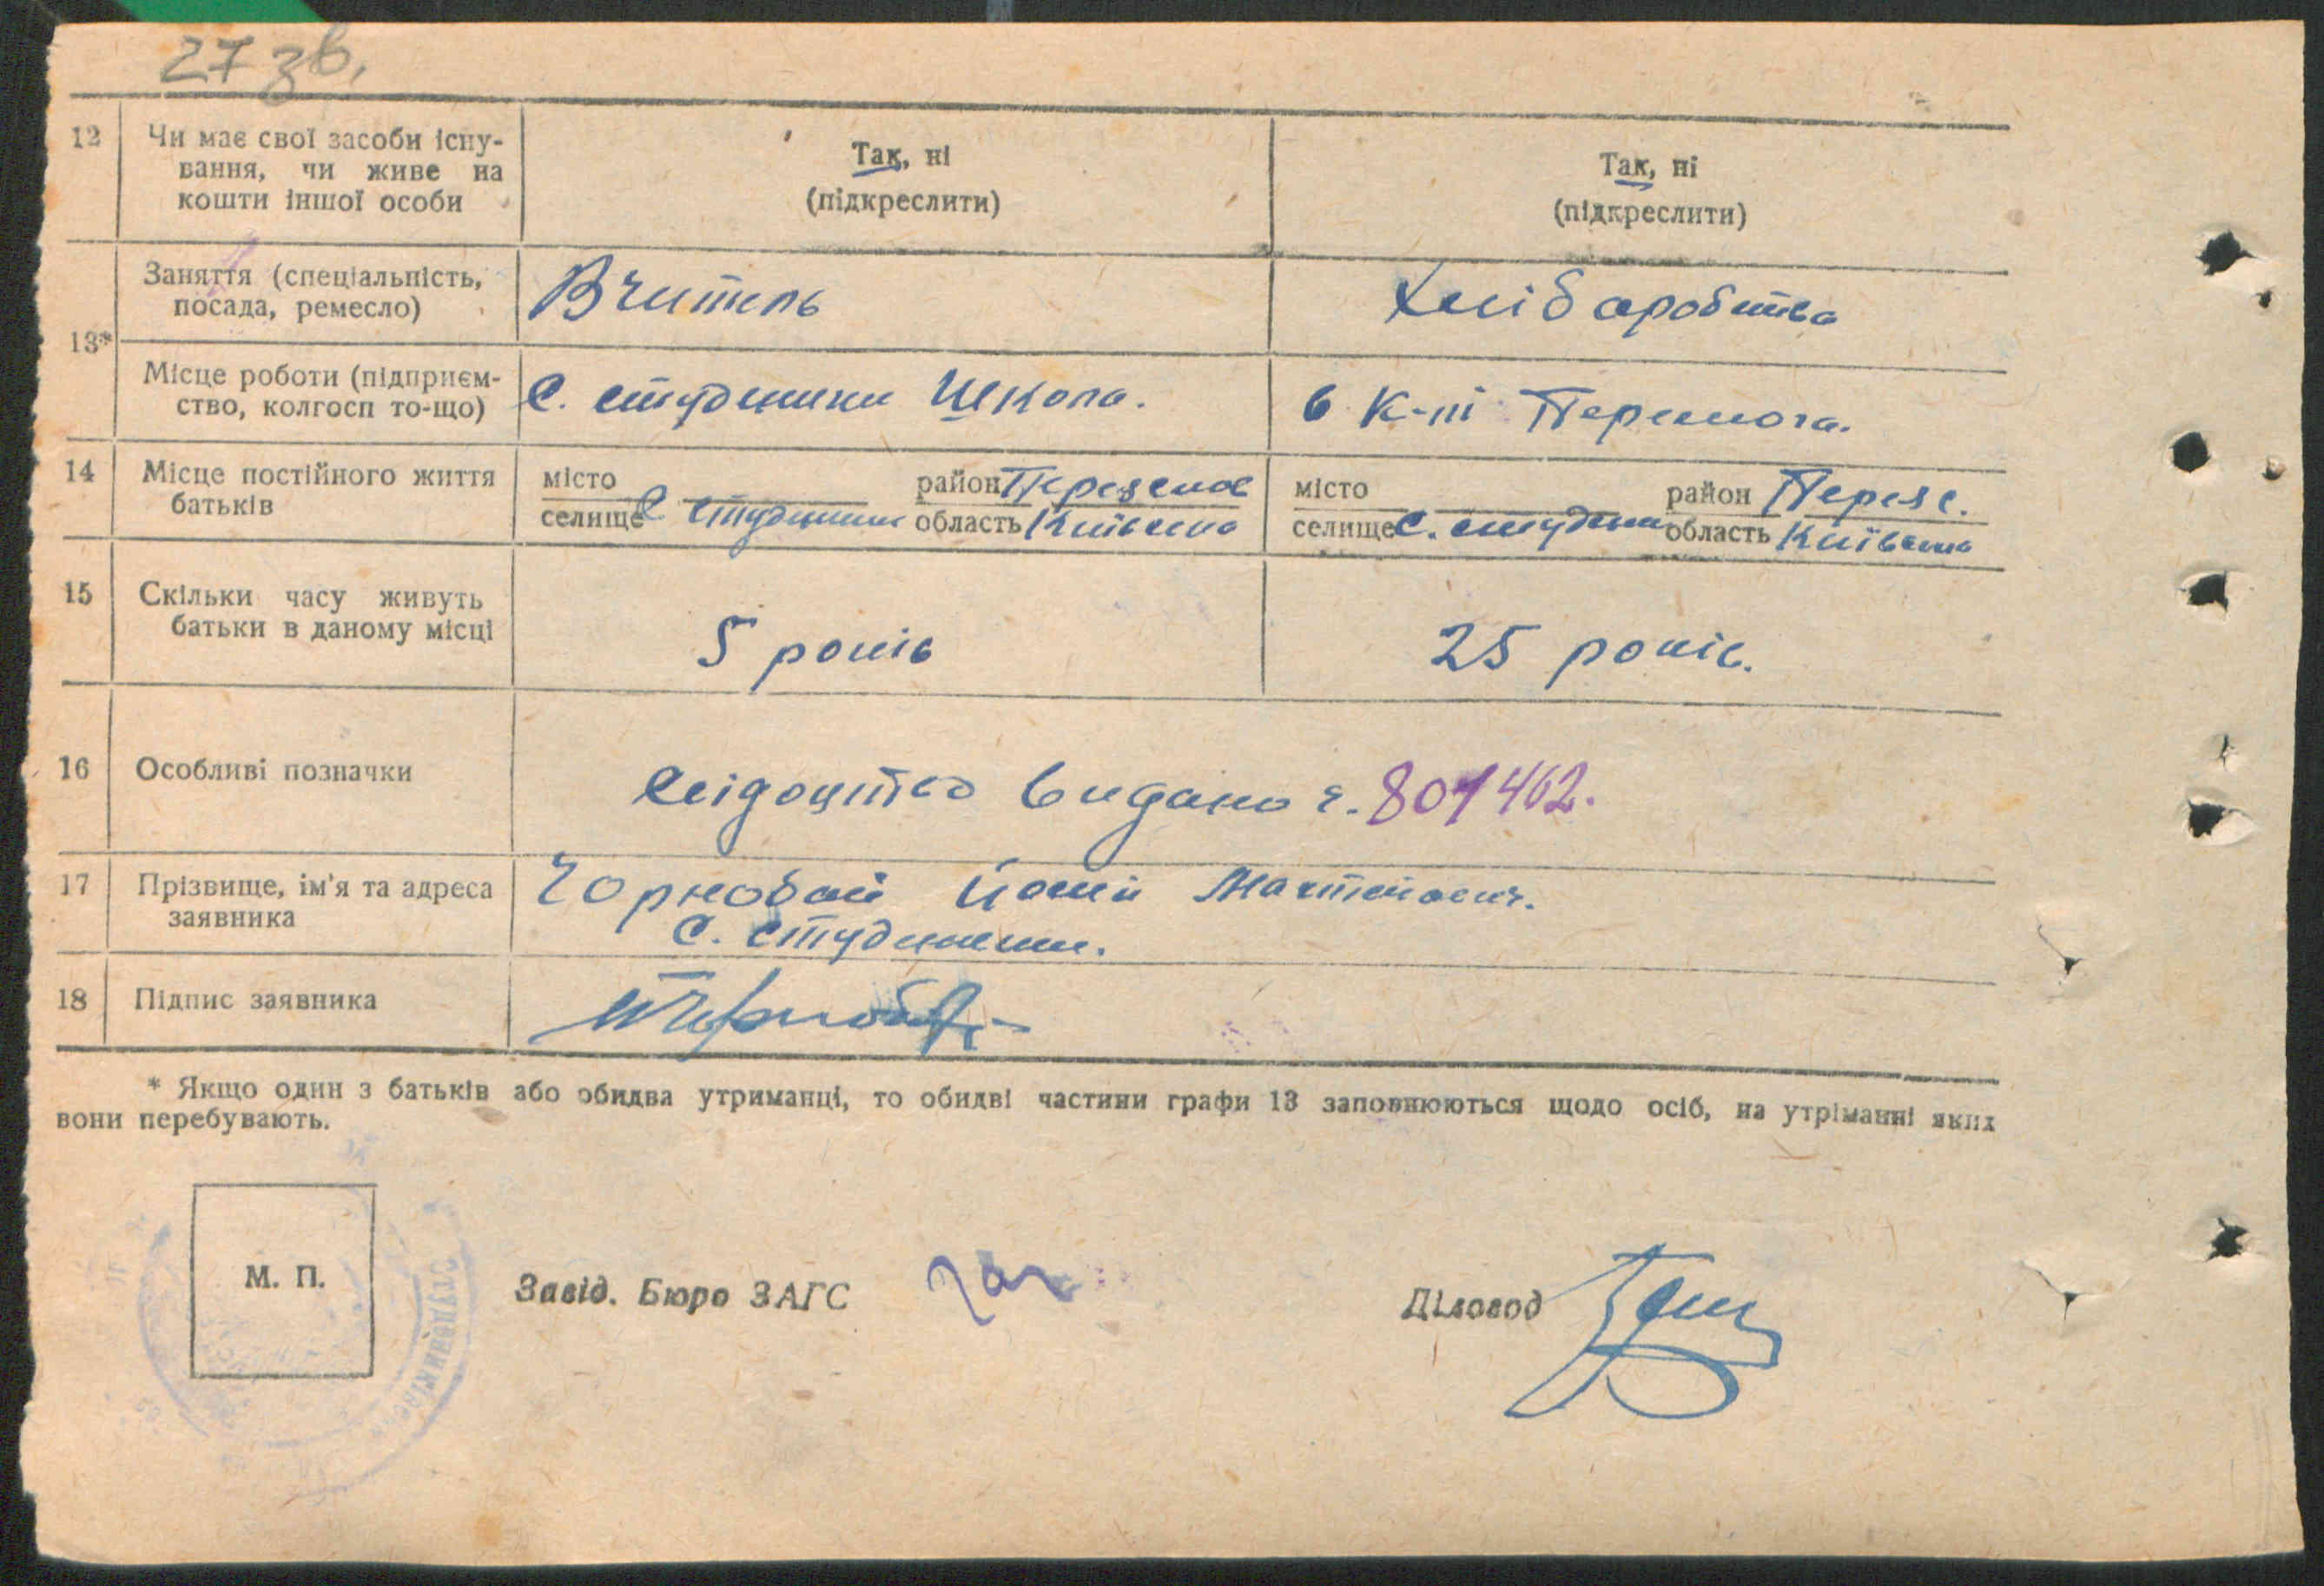 27 зв.
12
Чи має свої засоби існу-
вання, чи живе на
кошти іншої особи
Так, ні
(підкреслити)
Так, ні
(підкреслити)
13*
Заняття (спеціальність,
посада, ремесло)
Вчитель
Хліборобство
Місце роботи (підприєм-
ство, колгосп то-що)
С. Студеники Школа.
в к-пі Перемога.
14
Місце постійного життя
батьків
місто
селище С Студеники
район
область Київська
місто
селище С.
район
область Київська
15
Скільки часу живуть
батьки в даному місці
5 років
25 років.
16
Особливі позначки
Свідоцтво видано ч. 801462.
17
Прізвище, ім'я та адреса
заявника
Чорнобай
С. Студеники.
18
Підпис заявника
* Якщо один з батьків або обидва утриманці, то обидві частини графи 13 заповнюються щодо осіб, на утріманні яких
вони перебувають.
М. П.
Завід. Бюро ЗАГС
Діловод